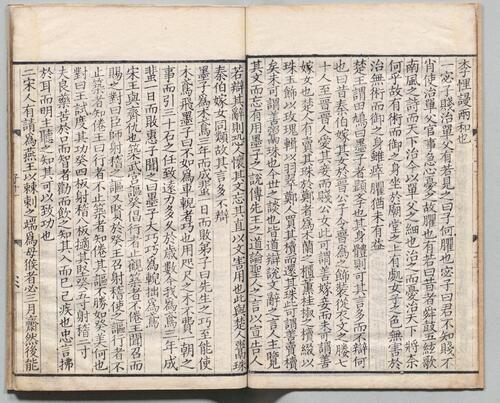 李悝謾兩和也
一宓子賤治單父有若見之曰子何臞也宓子曰君不知賤不
肖使治單父官事急心憂之故臞也有若曰昔者舜鼓五絃歌
南風之詩而天下治今以單父之細也治之而憂治天下將柰
何乎故有術而御之身坐於廟堂之上有處女子之色無害於
治無術而御之身雖瘁臞猶未有益
楚王謂田鳩曰墨子者顯學也其身體則可其言多而不辯何
也曰昔秦伯嫁其女於晉公子令晉爲之飾裝從衣文之媵七
十人至晉晉人愛其妾而賤公女此可謂善嫁妾而未可謂善
嫁女也楚人有賣其珠於鄭者爲木蘭之櫃薰桂椒之櫝綴以
珠玉飾以玫瑰輯以羽翠鄭人買其櫝而還其珠此可謂善賣櫝
矣未可謂善鬻珠也今世之談也皆道辯說文辭之言人主覽
其文而忘有用墨子之說傳先王之道論聖人之言以宣告人
若辯其辭則恐人懷其文忘其直以文害用也此與楚人鬻珠
秦伯嫁女同類故其言多不辯
墨子爲木鳶三年而成蜚一日而敗弟子曰先生之巧至能使
木鳶飛墨子曰不如爲車輗者巧也用咫尺之木不費一朝之
事而引三十石之任致遠力多久於歲數今我爲鳶三年成
蜚一日而敗惠子聞之曰墨子大巧巧爲輗拙爲鳶
宋王與齊仇也築武宮謳癸倡行者止觀築者不倦王聞召而
賜之對曰臣師射稽之謳又賢於癸王召射稽使之謳行者不
止築者知倦王曰行者不止築者知倦其謳不勝如癸美何也
對曰王試度其功癸四板射稽八板擿其堅癸五寸射稽二寸
夫良藥苦於口而智者勸而飲之知其入而已己疾也忠言拂
於耳而明主聽之知其可以致功也
二宋人有請爲燕王以棘刺之端爲母猴者必三月齋然後能